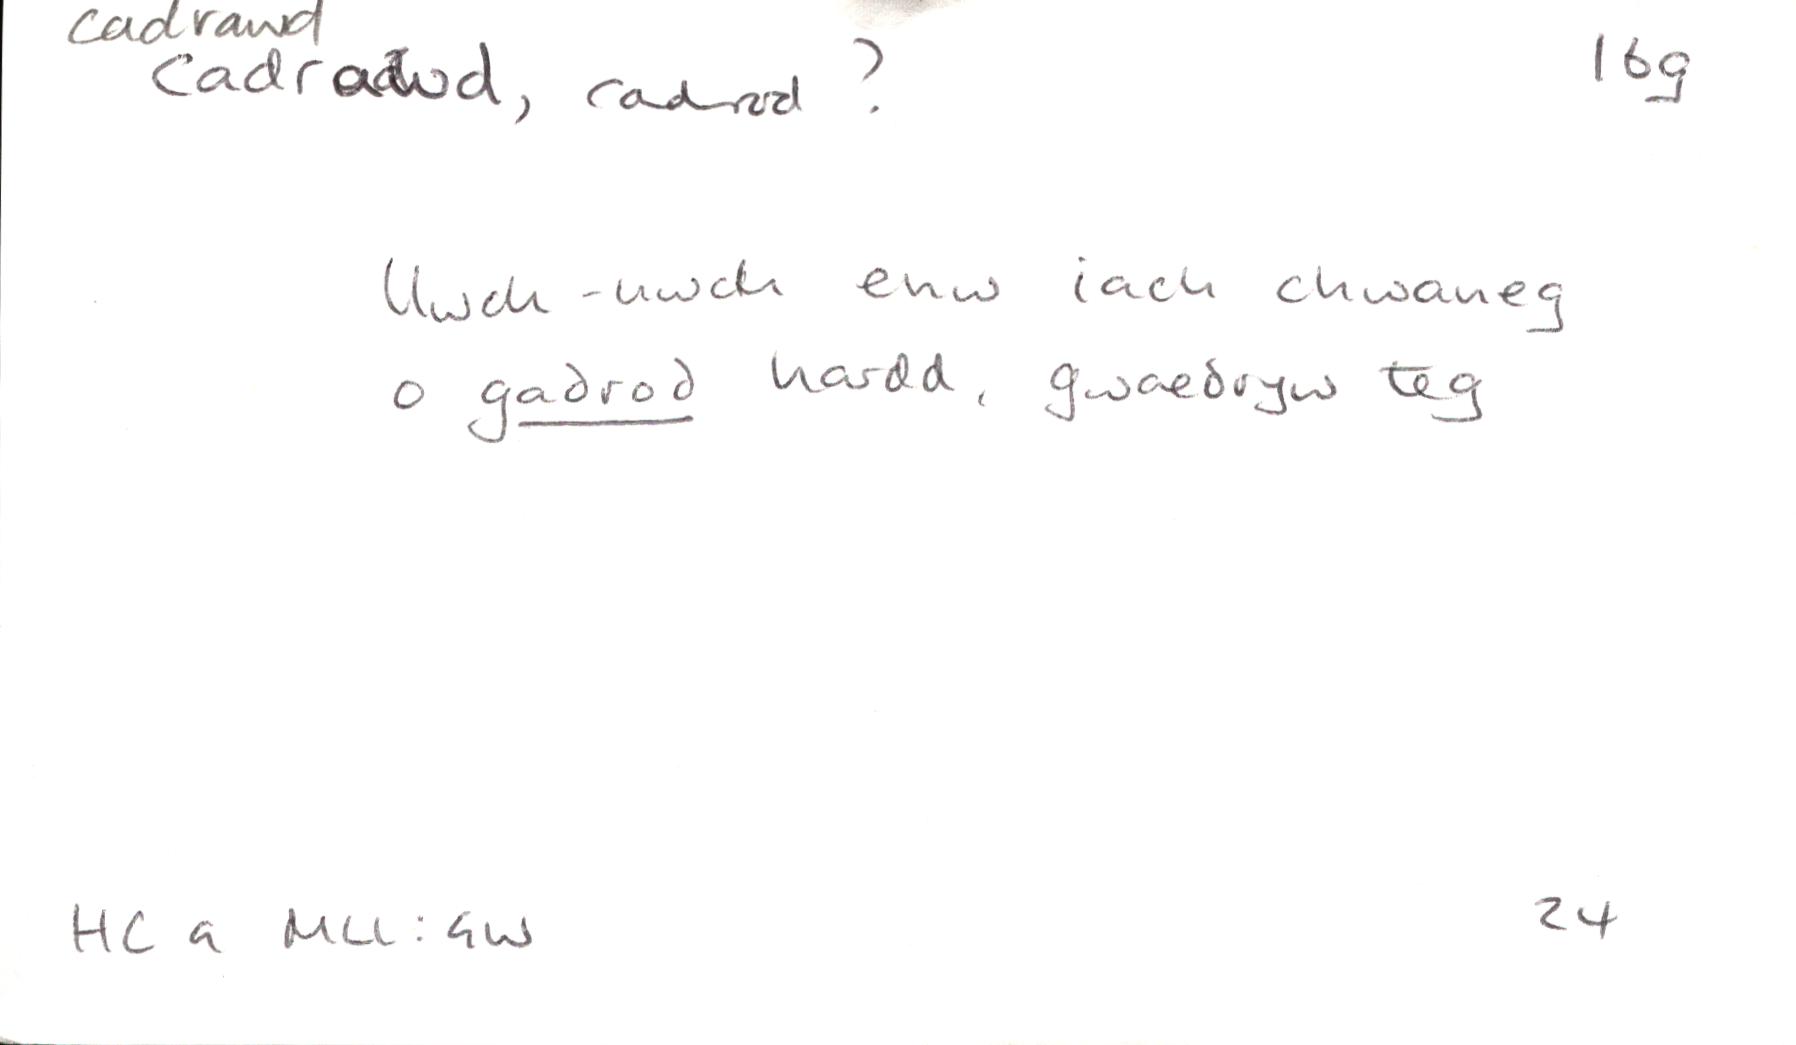 cadrawd
cadrawd, cadrod ? 16g
Uwch-uwch enw iach chwaneg
o gaδrod hardd, gwaeδryw teg
HC a MLl: GW 24